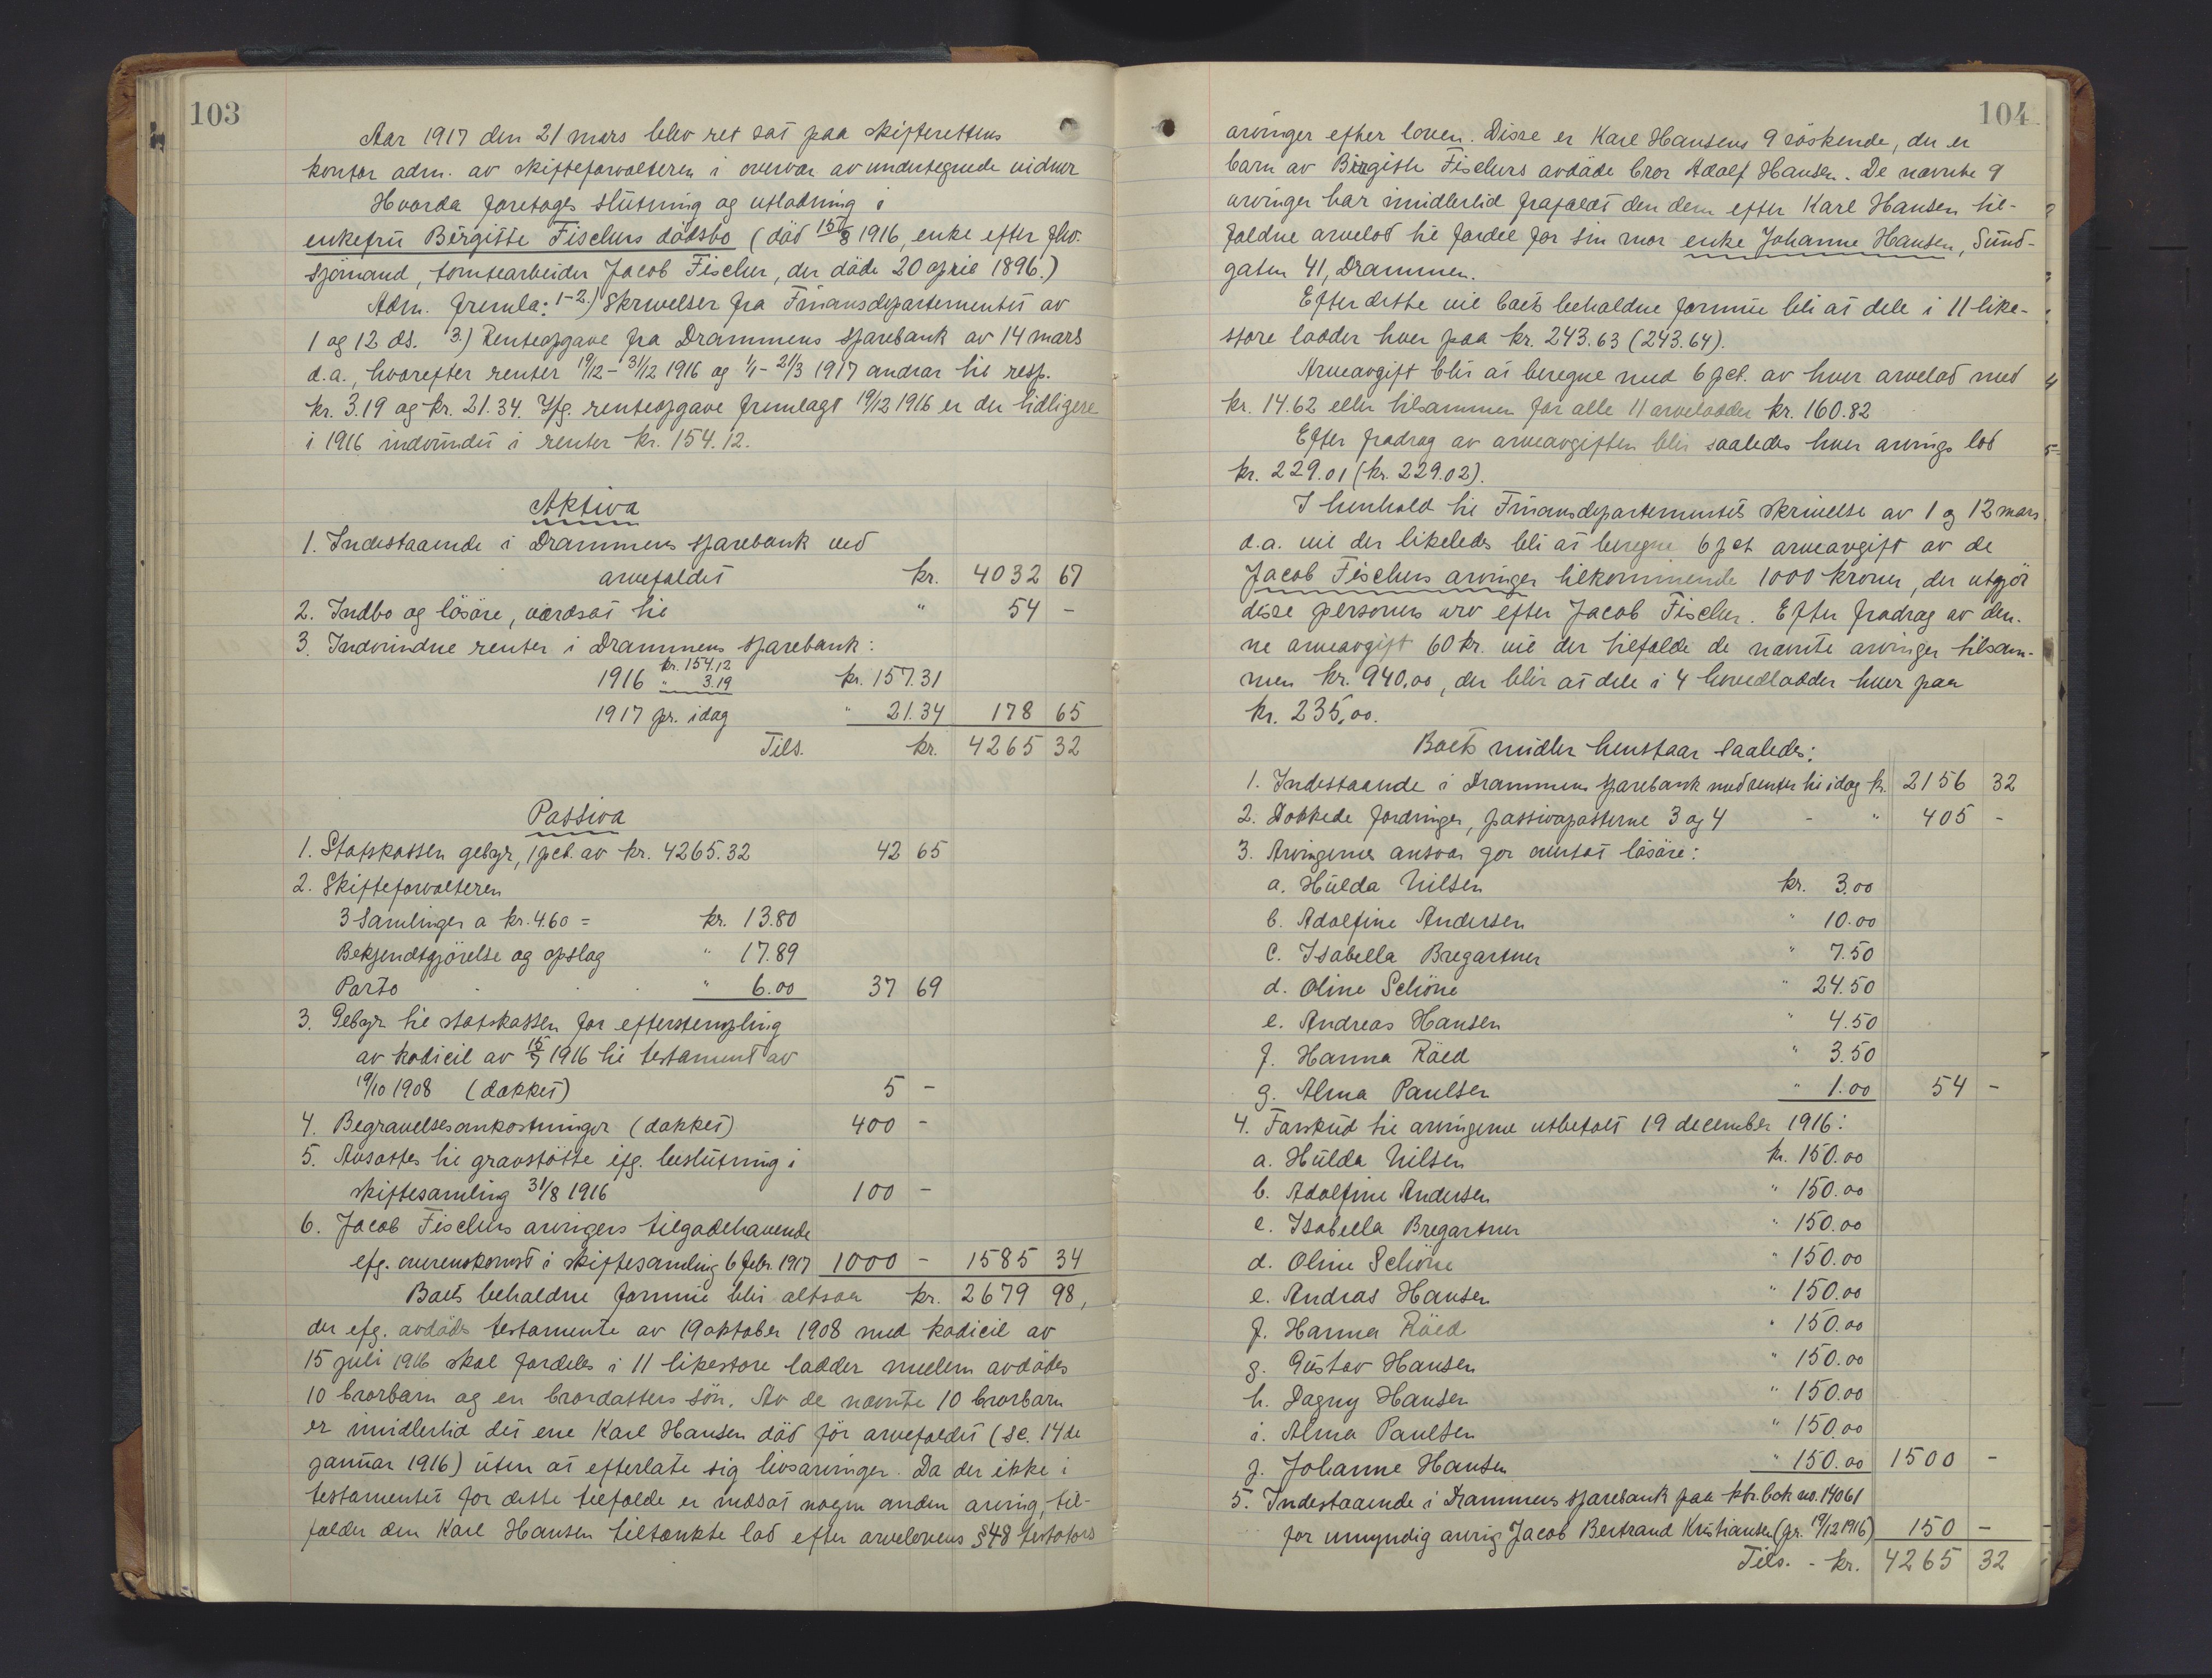 103
Aar 1917 den 21 mars blev ret sat paa skifterettens
kontor adm. av skifteforvalteren i overvær av undertegnede vidner
Hvorda foretoges slutning og utlodning i
enkefru Birgitte Fischers dødsbo (død 15/8 1916, enke efter fhv.
sjømand, tomtearbeider Jacob Fischer, der døde 20 april 1896.)
Adm. fremla: 1-2.) Skrivelser fra Finansdepartementet av
1 og 12 ds. 3.) Renteopgave fra Drammens sparebank av 14 mars
d.a., hvorefter renter 19/12 - 31/12 1916 og 1/1 - 21/3 1917 andrar til resp.
kr. 3.19 og kr. 21.34. Ifg. renteopgave fremlagt 19/12 1916 er der tidligere
i 1916 indvundet i renter kr. 154.12.
Aktiva
1. Indestaaende i Drammens sparebank ved
arvefaldet kr. 4032 67
2. Indbo og løsøre, værdsat til " 54 -
3. Indvundne renter i Drammens sparebank:
kr. 154.12
1916 " 3.19 kr. 157.31
1917 pr. idag " 21.34 178 65
Tils. kr. 4265 32
Passiva
1. Statskassen gebyr, 1 pct. av kr. 4265.32 42 65
2. Skifteforvalteren
3 Samlinger a kr. 4.60 = kr. 13.80
Bekjendtgjørelse og opslag " 17.89
Porto " 6.00 37 69
3. Gebyr til statskassen for efterstempling
av kodicil av 15/7 1916 til testament av
19/10 1908 (dækket) 5 -
4. Begravelsesomkostninger (dækket) 400 -
5. Avsættes til gravstøtte efg. beslutning i
skiftesamling 31/8 1916 100 -
6. Jacob Fischers arvingers tilgodehavende
efg. overenskomst i skiftesamling 6 febr. 1917 1000 - 1585 34
Boets beholdne formue blir altsaa kr. 2679 98,
der efg. avdødes testamente av 19 oktober 1908 med kodicil av
15 juli 1916 skal fordeles i 11 likestore lodder mellem avdødes
10 brorbarn og en brordatters søn. Av de nævnte 10 brorbarn
er imidlertid det ene Karl Hansen død før arvefaldet (sc. 14de
januar 1916) uten at efterlate sig livsarvinger. Da der ikke i
testamentet for dette tilfælde er indsat nogen anden arving, til-
falder den Karl Hansen tiltænkte lod efter arvelovens §48 testators
104
arvinger efter loven. Disse er Karl Hansens 9 søskende, der er
barn av Birgitte Fischers avdøde bror Adolf Hansen. De nævnte 9
arvinger har imidlertid frafaldt den dem efter Karl Hansen til-
faldne arvelod til fordel for sin mor enke Johanne Hansen, Sund-
gaten 41, Drammen.
Efter dette vil boets beholdne formue bli at dele i 11 like-
store lodder hver paa kr. 243.63 (243.64).
Arveavgift blir at beregne med 6 pct. av hver arvelod med
kr. 14.62 eller tilsammen for alle 11 arvelodder kr. 160.82
Efter fradrag av arveavgiften blir saaledes hver arvings lod
kr. 229.01 (kr. 229.02).
I henhold til Finansdepartementets skrivelse av 1 og 12 mars
d.a. vil der likeledes bli at beregne 6 pct arveavgift av de
Jacob Fischers arvinger tilkommende 1000 kroner, der utgjør
disse personers arv efter Jacob Fischer. Efter fradrag av den-
ne arveavgift 60 kr. vil der tilfalde de nævnte arvinger tilsam-
men kr. 940.00, der blir at dele i 4 hovedlodder hver paa
kr. 235,00.
Boets midler henstaar saaledes:
1. Indestaaende i Drammens sparebank med renter til idag kr. 2156 32
2. Dækkede fordringer, passivaposterne 3 og 4 - " 405 -
3. Arvingernes ansvar for mottat løsøre:
a. Hulda Nilsen kr. 3.00
b. Adolfine Andersen " 10.00
c. Isabella Bregartner " 7.50
d. Oline Schöne " 24.50
e. Andreas Hansen " 4.50
f. Hanna Røed " 3.50
g. Alma Paulsen " 1.00 54 -
4. Forskud til arvingerne utbetalt 19 december 1916:
a. Hulda Nilsen kr. 150.00
b. Adolfine Andersen " 150.00
c. Isabella Bregartner " 150.00
d. Oline Schöne " 150.00
e. Andreas Hansen " 150.00
f. Hanna Røed " 150.00
g. Gustav Hansen " 150.00
h. Dagny Hansen " 150.00
i. Alma Paulsen " 150.00
j. Johanne Hansen " 150.00 1500 -
5. Indestaaende i Drammens sparebank paa ktr.bok no. 14061
for umyndig arving Jacob Bertrand Kristiansen (pr. 19/12 1916) 150 -
Tils. - kr. 4265 32